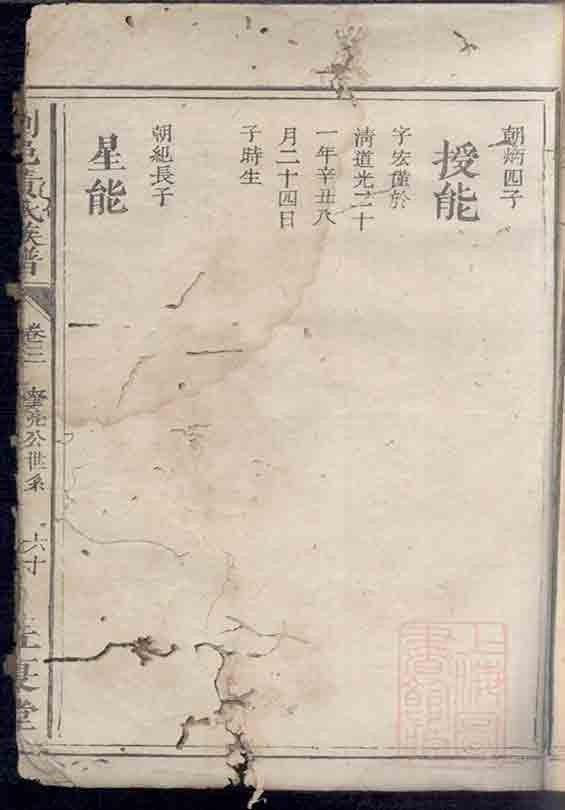 朝炳四子
授能
字宏僅於
清道光二十
一年辛丑八
月二十四日
子時生
朝紀長子
星能
邑黃氏族譜
卷二
公世系
六十
堂
上海圖書館藏